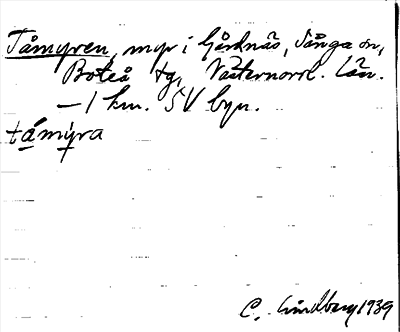 Tåmyren, myr i Gårdnäs, Sånga sn,
Boteå tg, Västernorrl. län.
– 1 km. SV byn.
támýra
C. Lindberg 1939